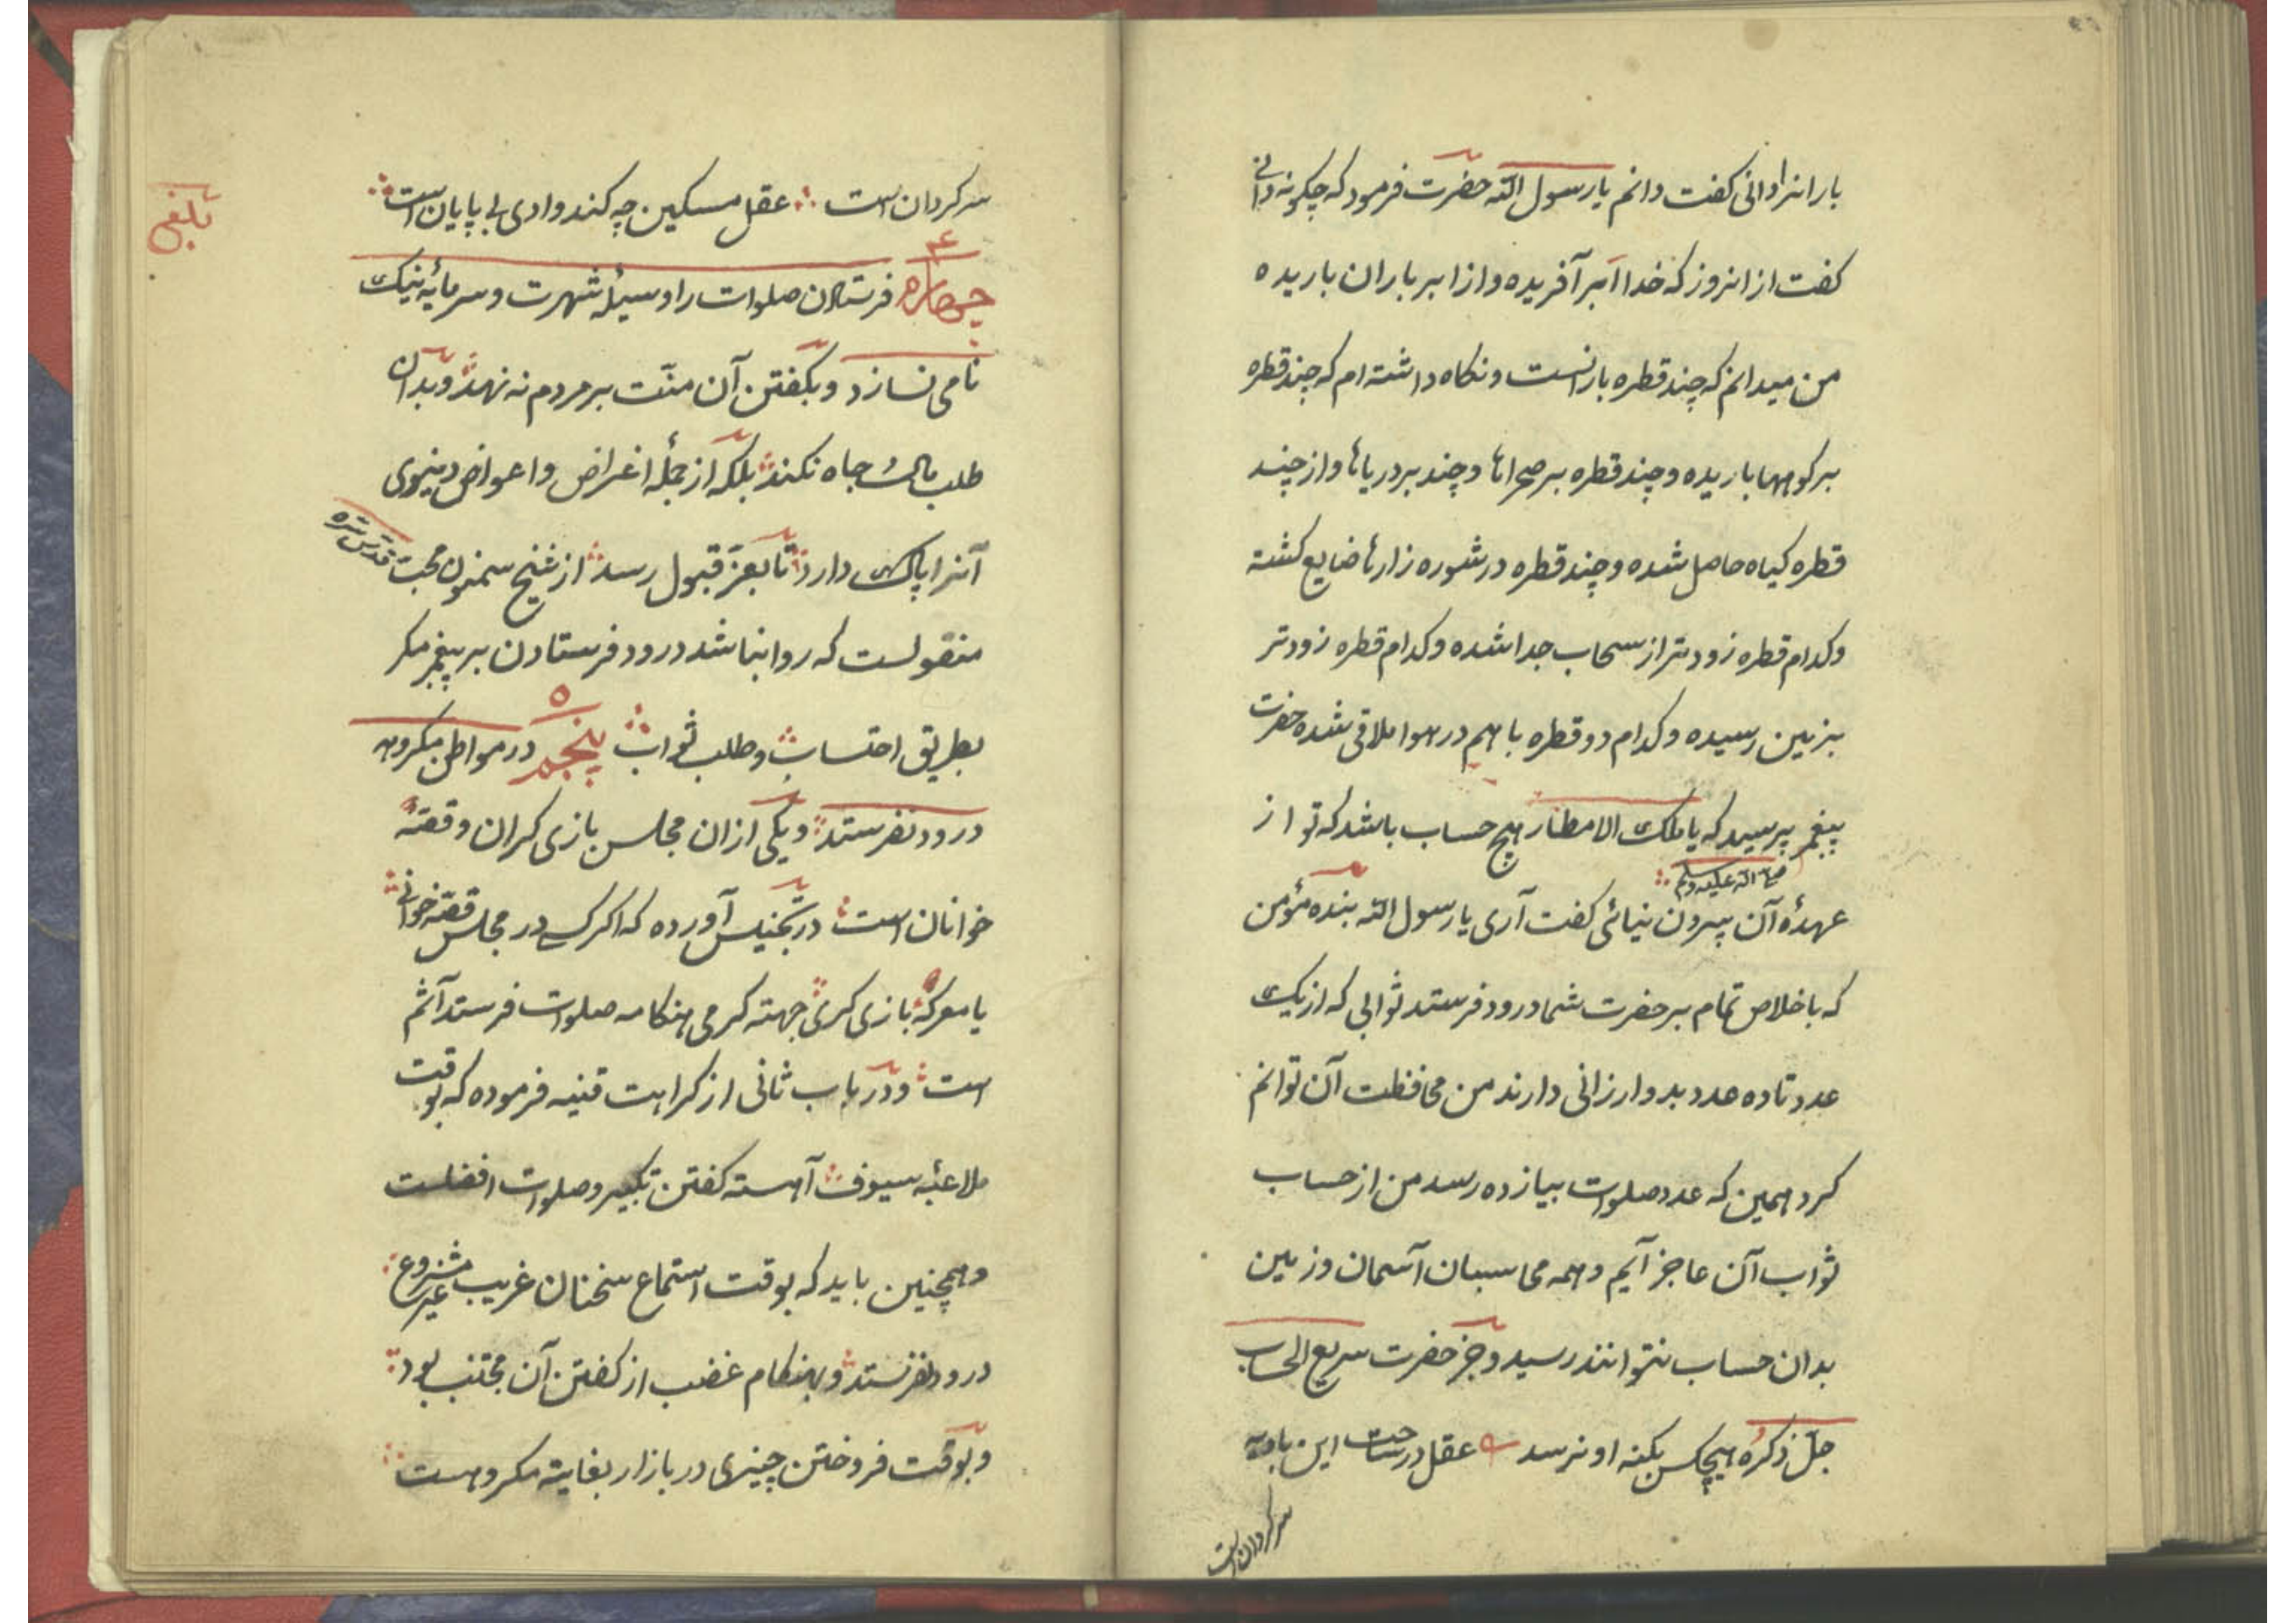 بارانرا دانی کفت دانم یا رسول الله حضرت فرمود که چکونه دانی
کفت از انروز که خدا ابر آفریده و از ابر باران باریده
من میدانم که چند قطره بارانست و نکاه داشته ام که چند قطره
بر کوهها باریده و چند قطره بر صحراها و چند بر دریاها و از چند
قطره کیاه حاصل شده و چند قطره در شوره زارها ضایع کشته
و کدام قطره زودتر از سحاب جدا شده و کدام قطره زودتر
بزمین رسیده و کدام دو قطره با هم در هوا ملاقی شده حضرت
پیغمبر پرسید که یا ملک الامطار هیچ حساب باشد که تو از
صلی الله علیه وسلم
عهدۀ آن بیرون نیائی کفت آری یا رسول الله بنده مؤمن
که باخلاص تمام بر حضرت شما درود فرستد ثوابی که از یک
عدد تا ده عدد بدو ارزانی دارند من محافظت آن توانم
کرد همین که عدد صلوات بیازده رسد من از حساب
ثواب آن عاجز آیم و همه محاسبان آسمان و زمین
بدان حساب نتوانند رسید و جز حضرت سریع الحساب
جل ذکره هیچکس بکنه او نرسد عقل در ساحت این بادیه
سرکردان است
سرکردان است عقل مسکین چه کند وادی بی پایان است
تلفی
۴
چهارم فرستادن صلوات را وسیلۀ شهرت و سرمایۀ نیک
نامی نسازد و بکفتن آن منّت بر مردم نه نهد و بدان
طلب مال و جاه نکند بلکه از جملۀ اغراض و اعواض دنیوی
آنرا پاک دارد تا بعزّ قبول رسد از شیخ سمنون محب قدس سره
منقولست که روا نباشد درود فرستادن بر پیغمبر مکر
بطریق احتساب و طلب ثواب پنجم در مواطن مکروهه
۵
درود نفرستد و یکی ازان مجلس بازی کران و قصّۀ
خوانان است در تجنیس آورده که اکر کسی در مجلس قصّه خوانی
یا معرکۀ بازی کری جهته کرمی هنکامه صلوات فرستد آثم
است و در باب ثانی از کراهت قنیه فرموده که بوقت
ملاعبۀ سیوف آهسته کفتن تکبیر و صلوات افضلست
و همچنین باید که بوقت استماع سخنان غریب غیر مشروع
درود نفرستد و بهنکام غضب از کفتن آن مجتنب بود
و بوقت فروختن چیزی در بازار بغایة مکروهست